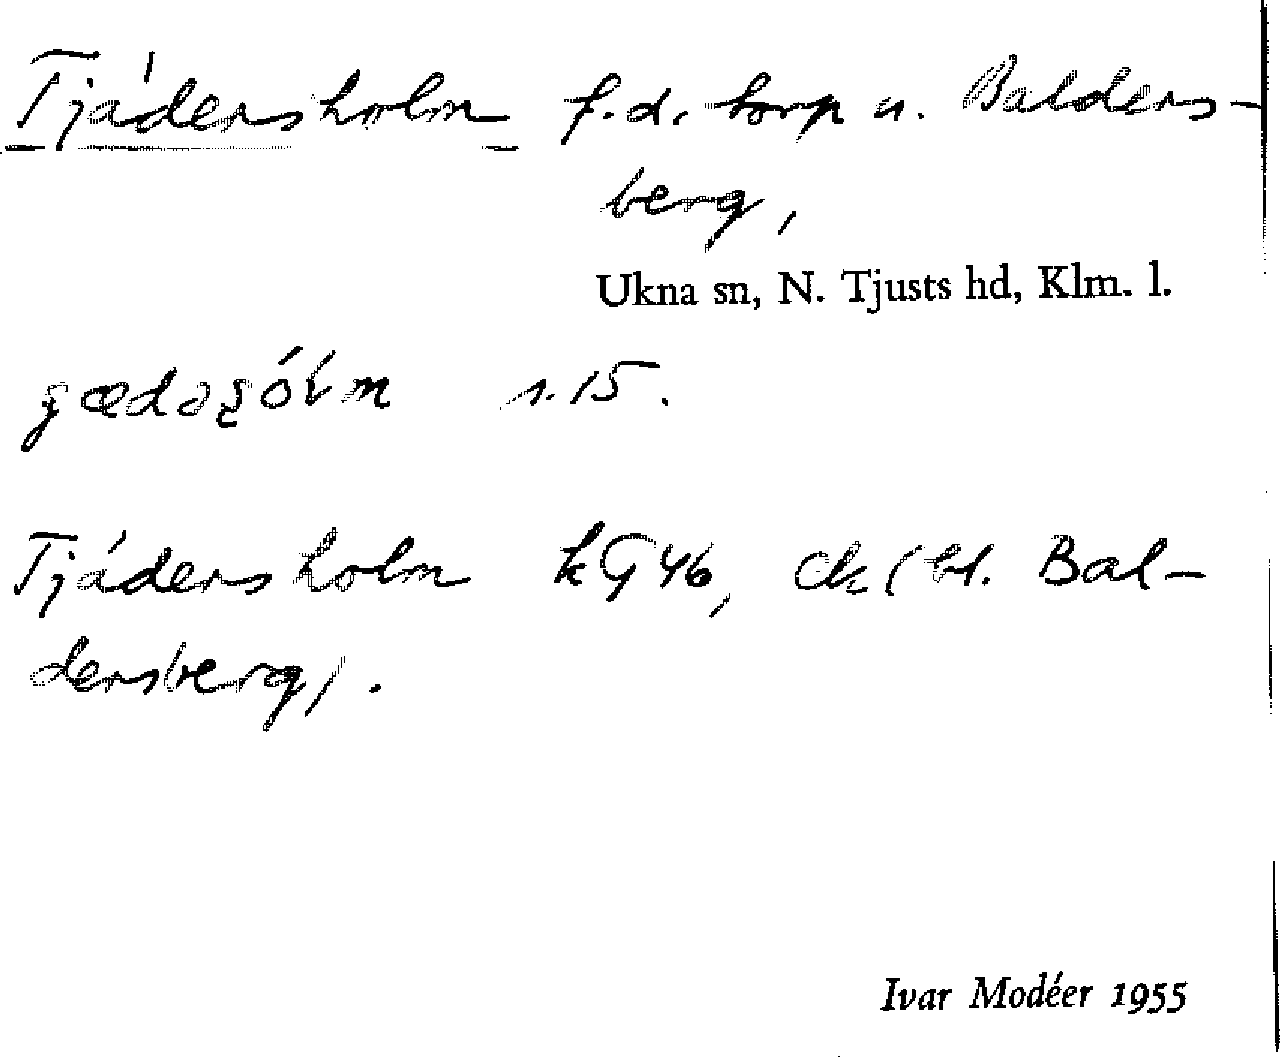 Tjádersholm f.d. torp u. Balders-
berg,
Ukna sn, N. Tjusts hd, Klm. l.
s. 15.
Tjádersholm kG 46, ck (bl. Bal-
dersberg).
Ivar Modéer 1955